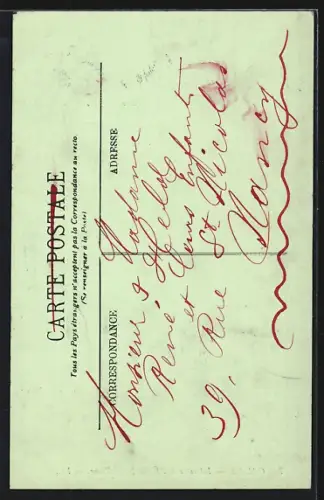 CARTE POSTALE
Tous les Pays étrangers n'acceptent pas la Correspondance au recto.
(Se renseigner à la Poste)
CORRESPONDANCE
ADRESSE
Monsieur & Madame
René
et Leurs Enfants
39, Rue St Nicolas
Nancy